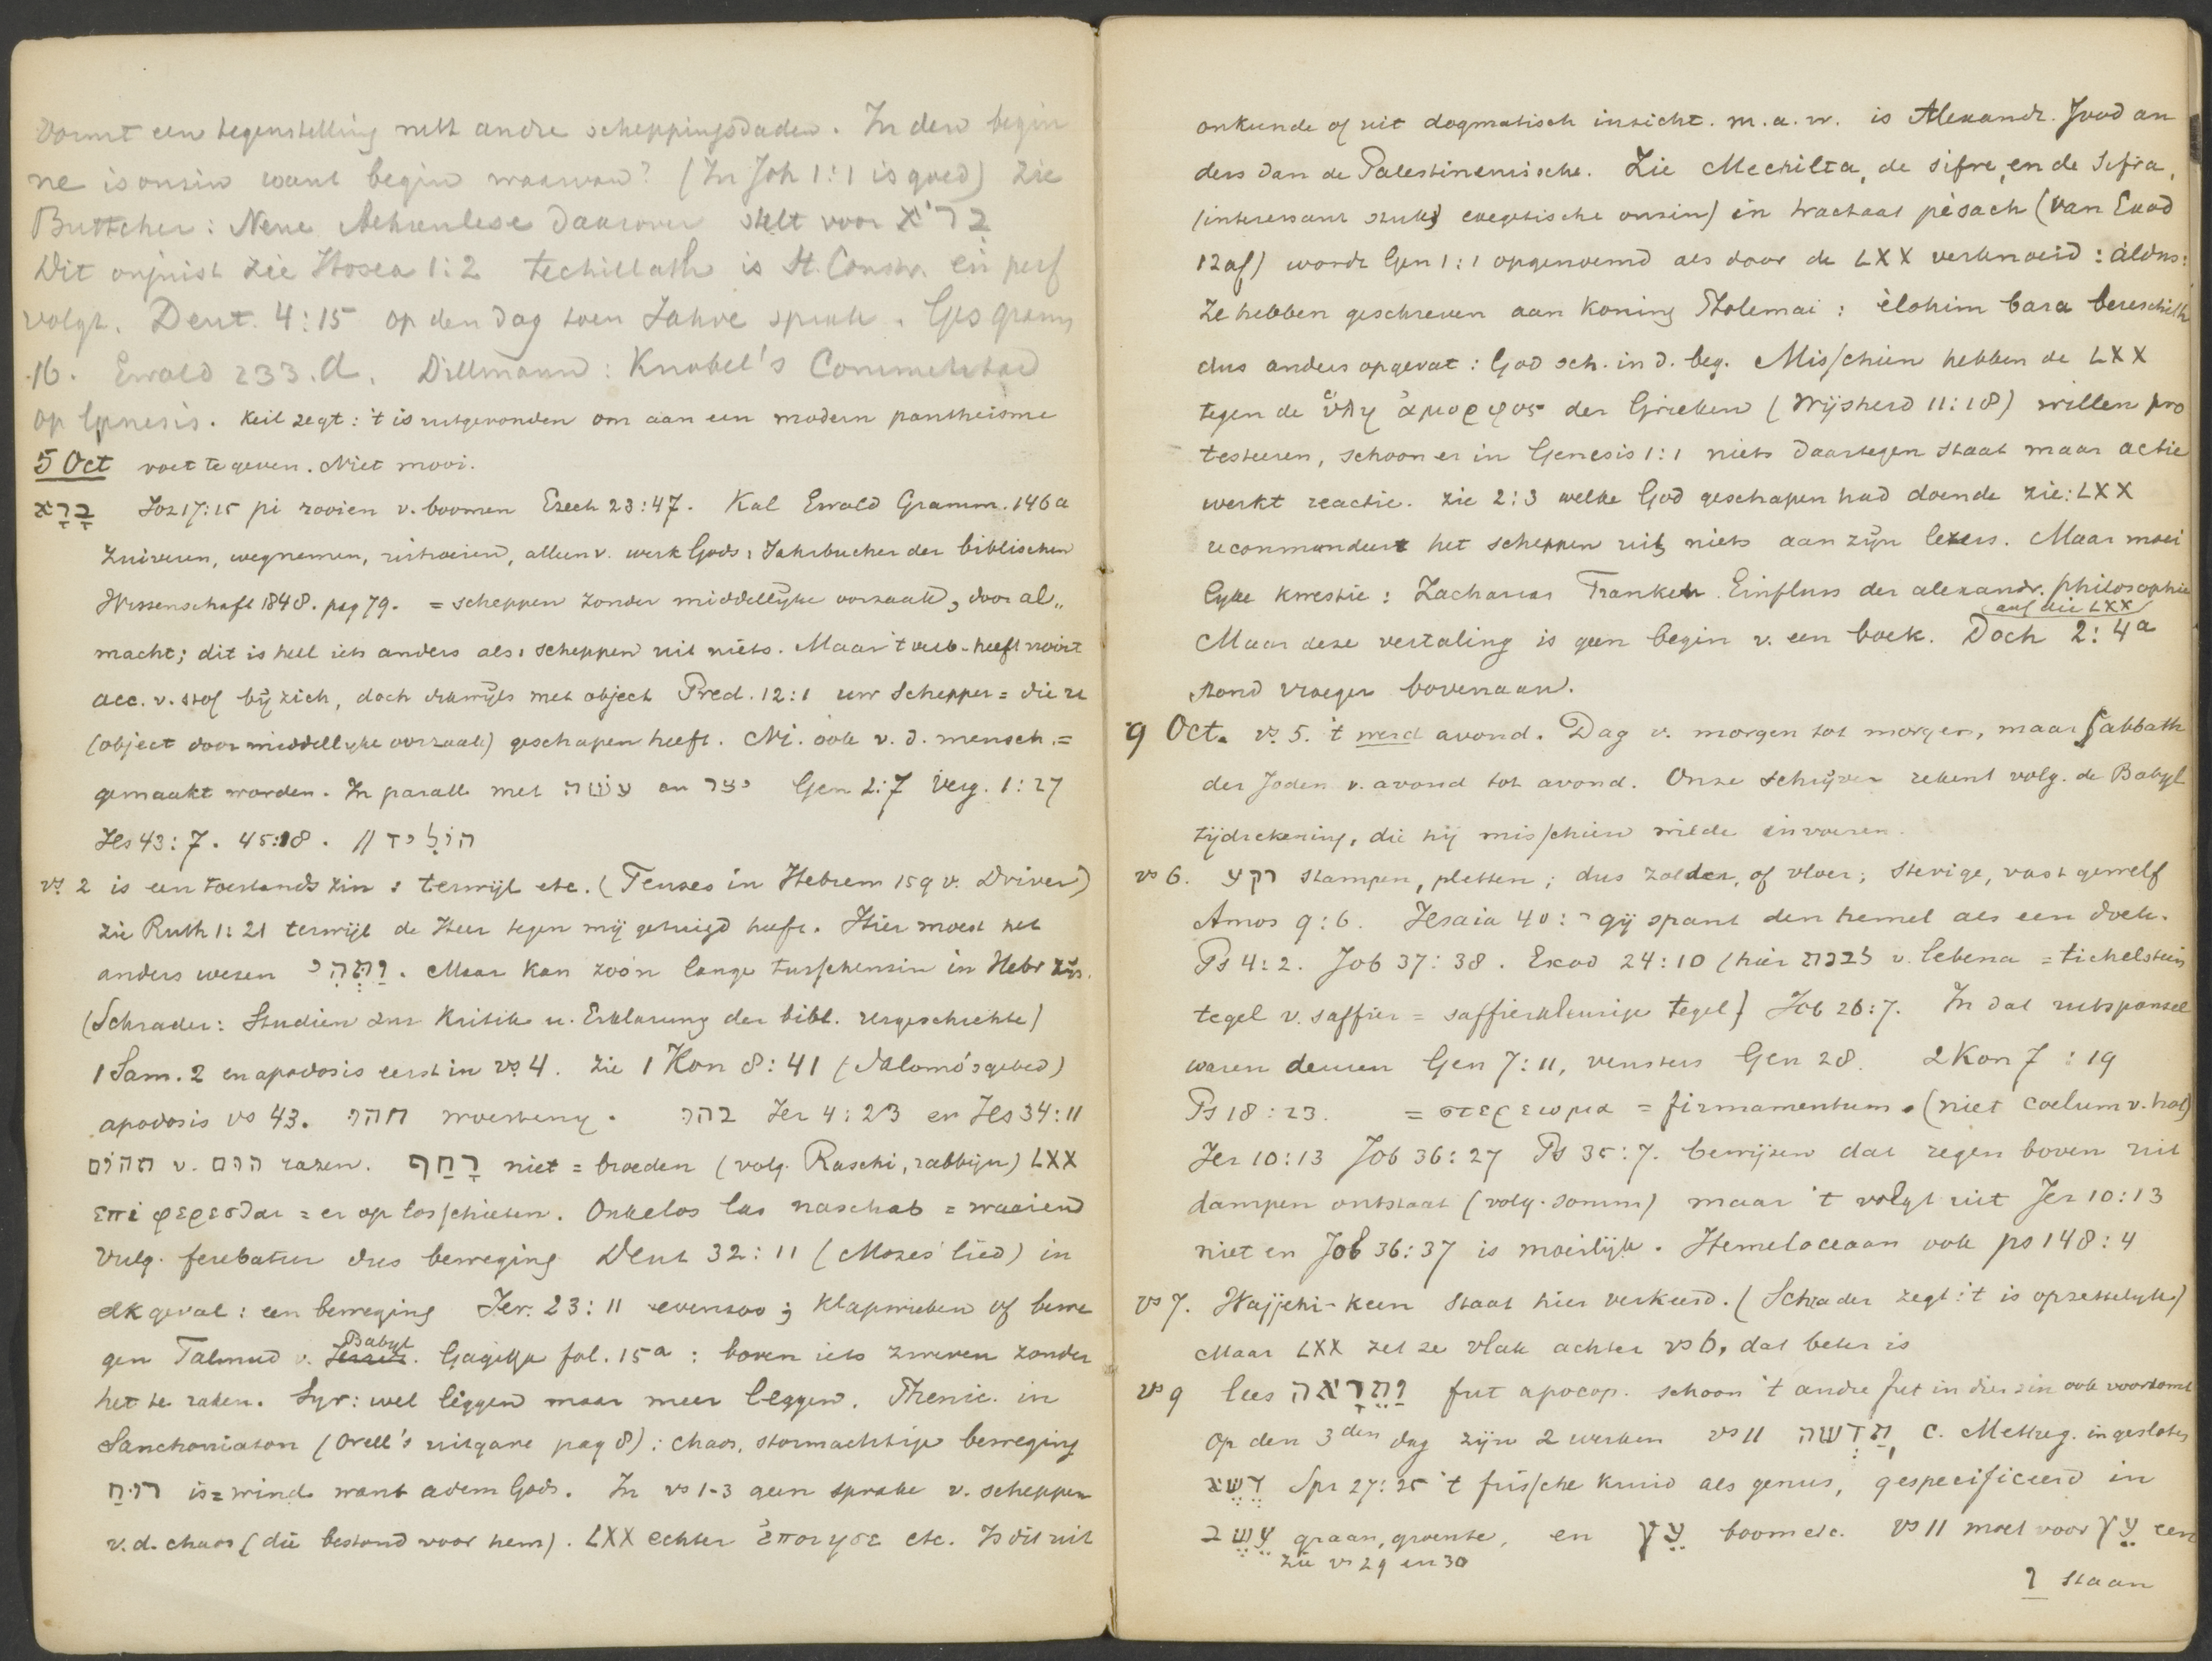 Vormt een tegenstelling met andre scheppingsdaden. In den begin
ne is onzin want begin waarvan? (In Joh 1:1 is goed) Zie
Buttcher: Neue Aehrenlese daarover stelt voor בְּרֹא
Dit onjuist zie Hosea 1:2 techillath is St. Constr. en perf
volgt. Deut. 4:15 op den dag toen Jahve sprak. Ges gramm
.16. Ewald 233.d. Dillmann: Knobel's Commentaar
op Genesis. Keil zegt: 't is uitgevonden om aan een modern pantheisme
5 Oct voet te geven. Niet mooi.
בָּרָא Joz 17:15 pi rooien v. boomen Ezech 23:47. Kal Ewald Gramm. 146a
Zuiveren, wegnemen, uitroeien, alleen v. werk Gods: Jahrbucher der biblischen
Wissenschaft 1848. pag 79. = scheppen zonder middellijke oorzaak, door al„
macht; dit is heel iets anders als: scheppen uit niets. Maar 't verb. heeft nooit
acc. v. stof bij zich, doch dikwijls met object Pred. 12:1 uw Schepper = die u
(object door middellijke oorzaak) geschapen heeft. Ni. ook v. d. mensch. =
gemaakt worden. In parall met עשׂה en יצר Gen 2:7 Verg. 1:27
Jes 43:7. 45:18. // הוֹלִיד
vs. 2 is een toestands zin: terwijl etc. (Tenses in Hebrew 159 v. Driver)
zie Ruth 1:21 terwijl de Heer tegen mij getuigd heeft. Hier moest het
anders wezen וַתְּהִי. Maar kan zoo'n lange tusschenzin in Hebr zijn.
(Schrader: Studien zur Kritik u. Erklarung der bibl. Urgeschichte)
1 Sam. 2 en apodosis eerst in vs. 4. Zie 1 Kon 8:41 (Salomo's gebed)
apodosis vs 43. תהו woesteny. בהו Jer 4:23 en Jes 34:11
תהום v. הום razen. רָחַף niet = broeden (volg. Raschi, rabbijn) LXX
επι φερεσθαι = er op losschieten. Onkelos las naschab = waaiend
Vulg. ferebatur dus beweging Deut 32:11 (Mozes lied) in
elk geval: een beweging Jer. 23:11 evenzoo; klapwieken of bewe
gen Talmud v. Babyl. Gagiga fol. 15a: boven iets zweven zonder
het te raken. Syr: wel liggen maar meer leggen. Phenic. in
Sanchoniaton (Orell's uitgave pag 8): chaos, stormachtige beweging
רוּחַ is = wind want adem Gods. In vs 1-3 geen sprake v. scheppen
v. d. chaos (die bestond voor hem). LXX echter ἐποιησε etc. Is dit uit
onkunde of uit dogmatisch inzicht. m.a.w. is Alexandr. Jood an
ders dan de Palestinensische. Zie Mechilta, de sifre, en de Sifra,
(interessant stukj exegetische onzin) in tractaat pèsach (van Exod
12 af) wordt Gen 1:1 opgenoemd als door de LXX verknoeid: aldus:
Ze hebben geschreven aan Koning Ptolemai: èlohim bara bereschith
dus anders opgevat: God sch. in d. beg. Misschien hebben de LXX
tegen de ὕλη ἀμορφος der Grieken (Wijsheid 11:18) willen pro
testeeren, schoon er in Genesis 1:1 niets daartegen staat maar actie
werkt reactie. Zie 2:3 welke God geschapen had doende zie: LXX
recommandeert het scheppen uit niets aan zijn lezers. Maar moei
lijke kwestie: Zacharias Frankel Einfluss der alexandr. philosophie
auf die LXX
Maar deze vertaling is geen begin v. een boek. Doch 2:4a
stond vroeger bovenaan.
9 Oct. vs. 5. 't werd avond. Dag v. morgen tot morgen, maar Sabbath
der Joden v. avond tot avond. Onze schrijver rekent volg. de Babyl
tijdrekening, die hij misschien wilde invoeren.
vs 6. רקע stampen, pletten; dus zolder, of vloer; stevige, vast gewelf
Amos 9:6. Jesaia 40: gij spant den hemel als een doek.
Ps 4:2. Job 37:38. Exod 24:10 (hier לבנת v. lebena = tichelsteen
tegel v. saffier = saffierkleurige tegel) Job 26:7. In dat uitspansel
waren deuren Gen 7:11, vensters Gen 28. 2 Kon 7:19
Ps 18:23. = στερεωμα = firmamentum. (niet coelum v. hol)
Jer 10:13 Job 36:27 Ps 35:7. bewijzen dat regen boven uit
dampen ontstaat (volg. somm) maar 't volgt uit Jer 10:13
niet en Job 36:37 is moeilijk. Hemeloceaan ook ps 148:4
vs 7. Wajjehi-keen staat hier verkeerd. (Schrader zegt: 't is opzettelijk)
Maar LXX zet ze vlak achter vs 6, dat beter is
vs 9 lees וַתֵּרָאֶה fut apocop. schoon 't andre fut in dien zin ook voorkomt
Op den 3den dag zijn 2 werken vs 11 תַּדְשֵׁה, c. Metheg. ingesloten
דֶּשֶׁא Spr 27:25 't frissche kruid als genus, gespecificeerd in
עֵשֶׂב graan, groente, en עֵץ boom etc. vs 11 moet voor עֵץ een
zie vs 29 en 30
ו staan